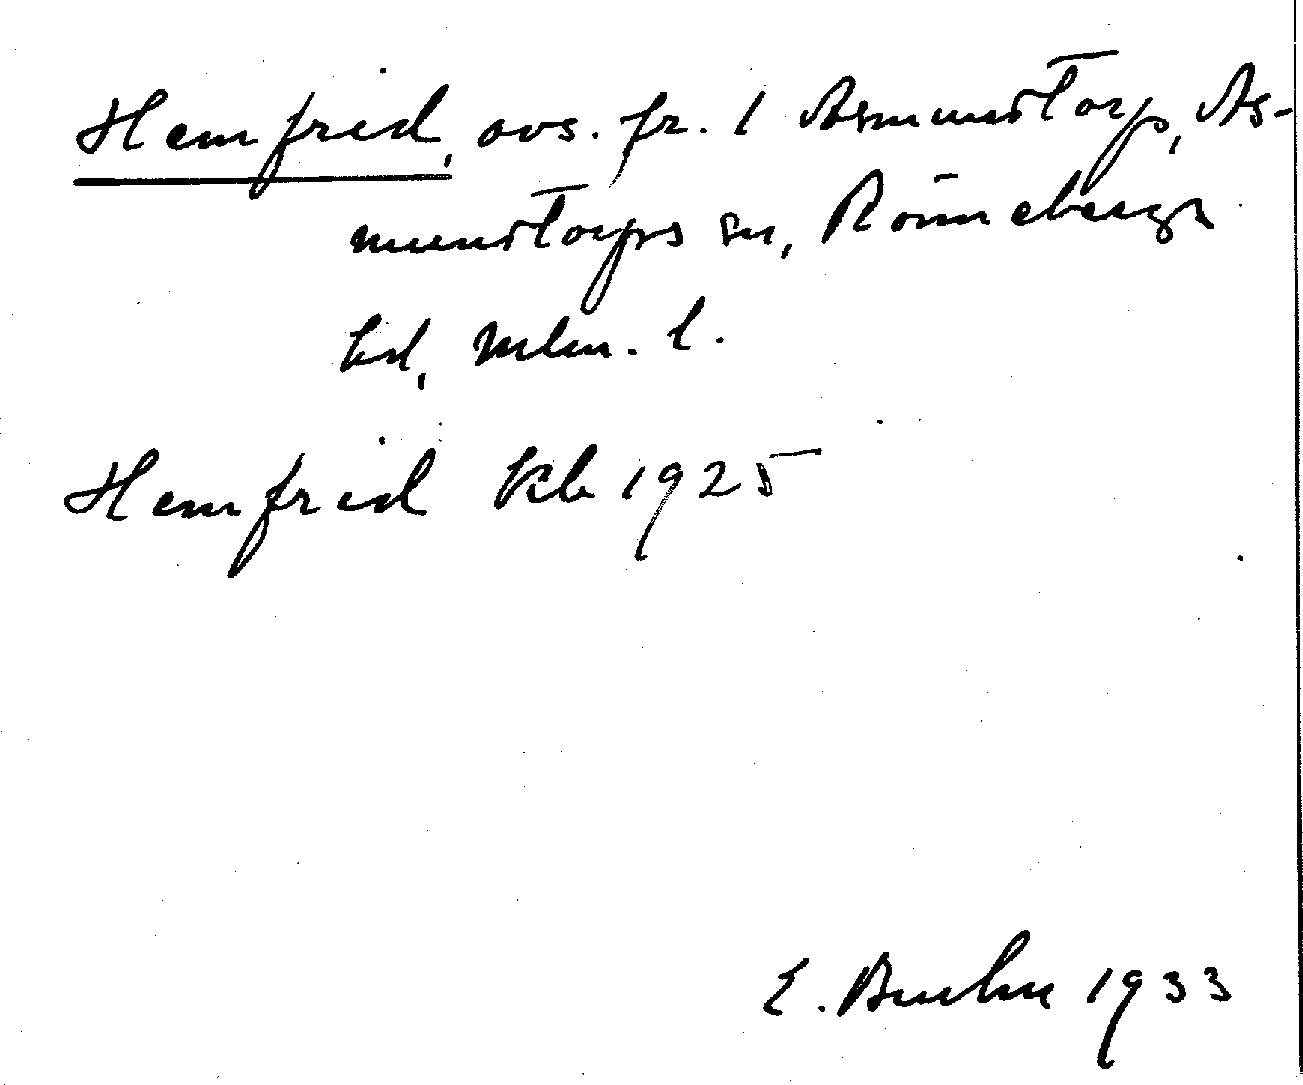 Hemfrid, avs. fr. 1 Asmundtorp, As-
mundtorps sn, Rönnebergs
hd, Mlm. l.
Hemfrid Kb 1925
E. Bruhn 1933